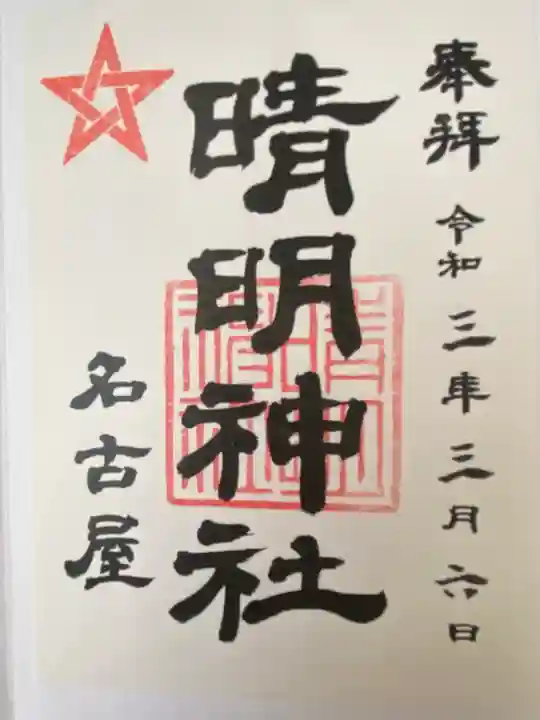 奉拜 令和三年三月六日
晴明神社
名古屋